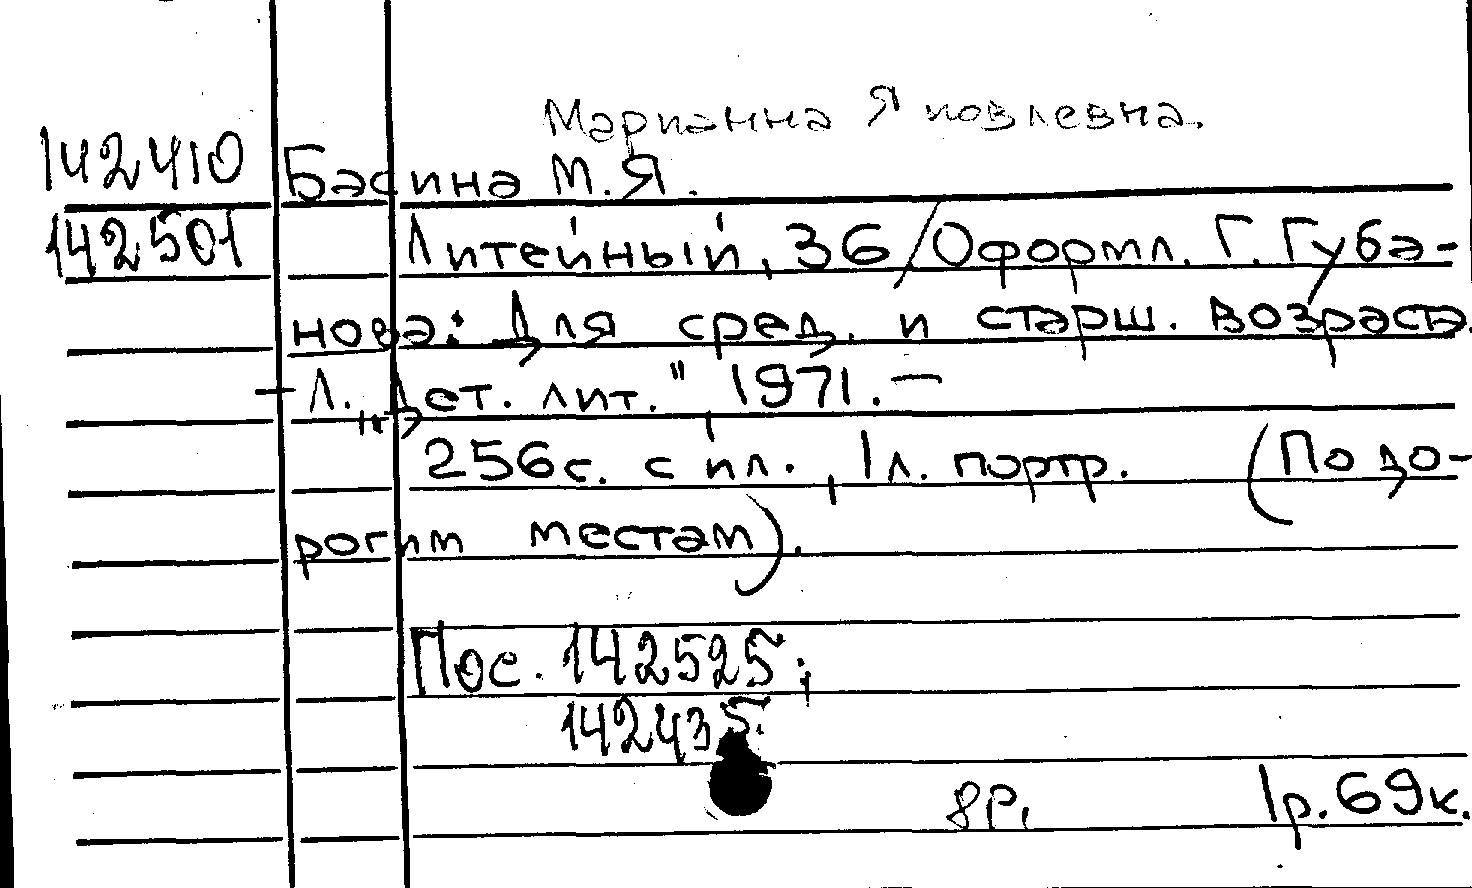 Марианна Яковлевна.
142410 Басина М.Я.
142501 Литейный, 36/Оформл. Г. Губа-
нова: Для сред. и старш. возраста.
- Л. „Дет. лит." 1971. -
256с. с ил., 1л. портр. (По до-
рогим местам).
Пос. 142525;
142435.
8Р. 1р. 69к.